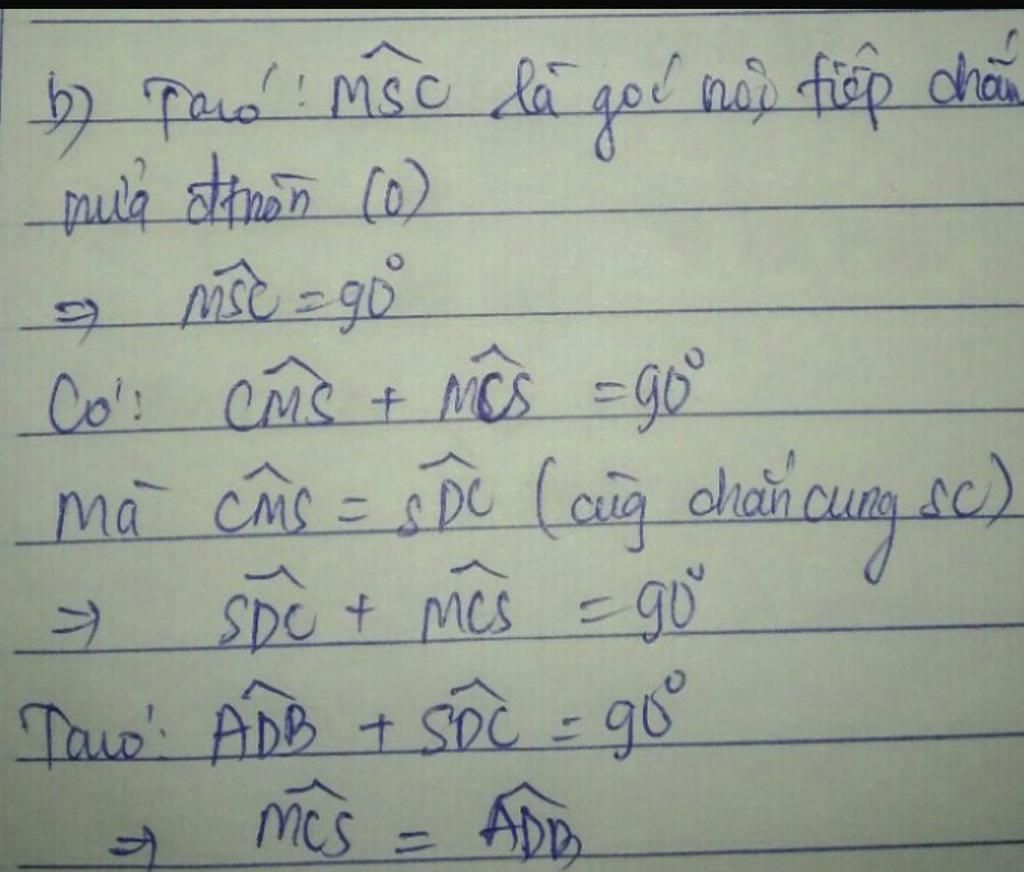 b) Ta có: \widehat{MSC} là góc nội tiếp chắn
nửa đtròn (O)
⇒ \widehat{MSC} = 90°
Có: \widehat{CMS} + \widehat{MCS} = 90°
Mà \widehat{CMS} = \widehat{SDC} (cùg chắn cung SC)
⇒ \widehat{SDC} + \widehat{MCS} = 90°
Ta có: \widehat{ADB} + \widehat{SDC} = 90°
⇒ \widehat{MCS} = \widehat{ADB}